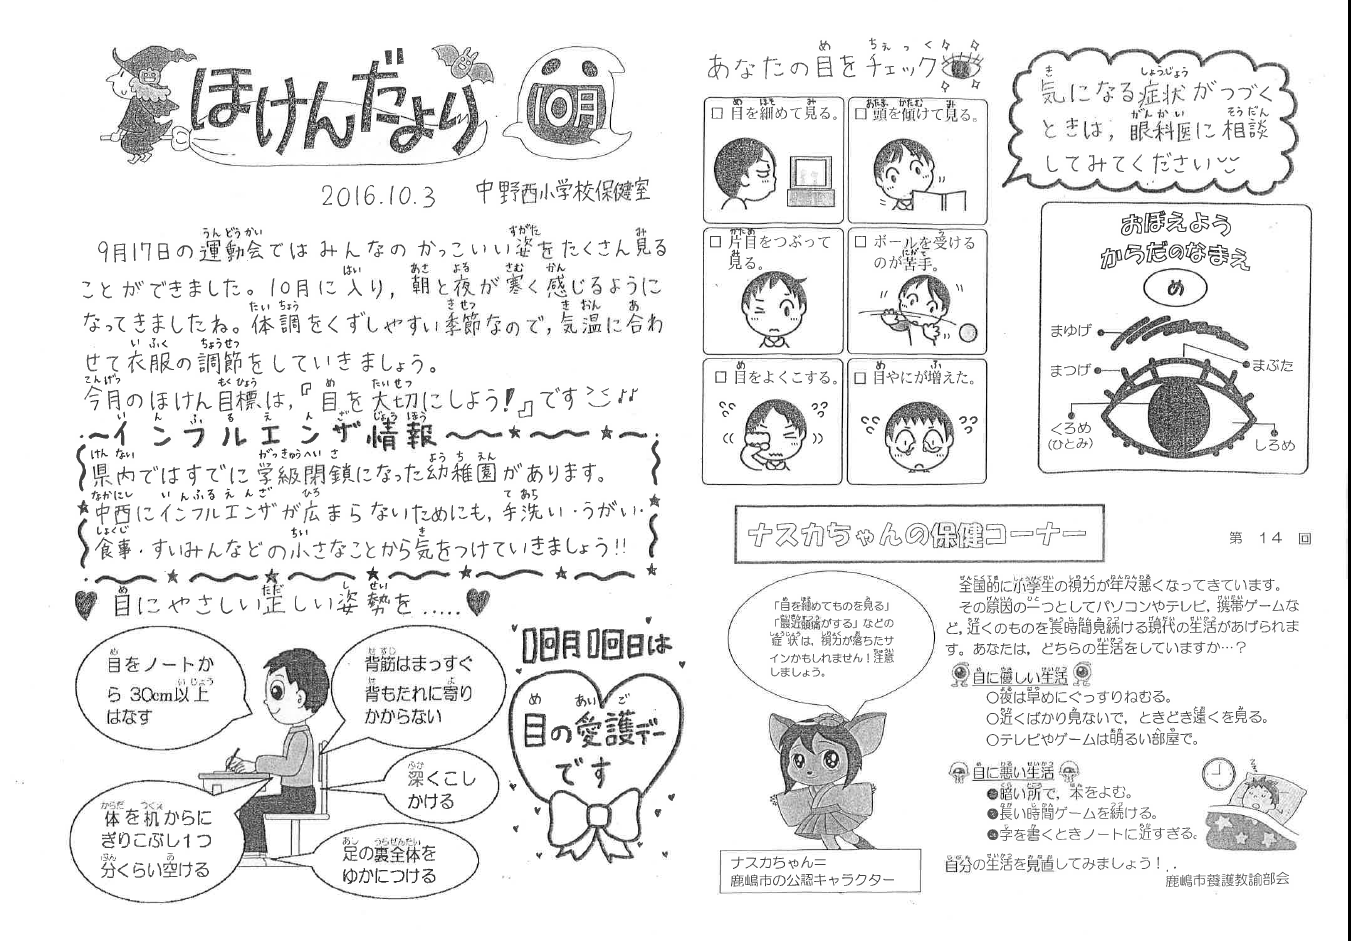 ほけんだより
10月
2016.10.3 中野西小学校保健室
9月17日の運動会ではみんなのかっこいい姿をたくさん見る
ことができました。10月に入り，朝と夜が寒く感じるように
なってきましたね。体調をくずしやすい季節なので，気温に合わ
せて衣服の調節をしていきましょう。
今月のほけん目標は，『目を大切にしよう！』です♪♪
インフルエンザ情報
県内ではすでに学級閉鎖になった幼稚園があります。
中西にインフルエンザが広まらないためにも，手洗い・うがい・
食事・すいみんなどの小さなことから気をつけていきましょう!!
目にやさしい正しい姿勢を.....
目をノートか
ら 30cm以上
はなす
背筋はまっすぐ
背もたれに寄り
かからない
深くこし
かける
体を机からに
ぎりこぶし１つ
分くらい空ける
足の裏全体を
ゆかにつける
10月10日は
目の愛護デー
です
あなたの目をチェック
□ 目を細めて見る。
□ 頭を傾けて見る。
□ 片目をつぶって
見る。
□ ボールを受ける
のが苦手。
□ 目をよくこする。
□ 目やにが増えた。
気になる症状がつづく
ときは，眼科医に相談
してみてください
おぼえよう
からだのなまえ
め
まゆげ
まつげ
まぶた
くろめ
(ひとみ)
しろめ
ナスカちゃんの保健コーナー
第 14 回
「目を細めてものを見る」
「最近頭痛がする」などの
症状は、視力が落ちたサ
インかもしれません！注意
しましょう。
ナスカちゃん＝
鹿嶋市の公認キャラクター
全国的に小学生の視力が年々悪くなってきています。
その原因の一つとしてパソコンやテレビ，携帯ゲームな
ど，近くのものを長時間見続ける現代の生活があげられま
す。あなたは，どちらの生活をしていますか…？
目に優しい生活
○夜は早めにぐっすりねむる。
○近くばかり見ないで，ときどき遠くを見る。
○テレビやゲームは明るい部屋で。
目に悪い生活
●暗い所で，本をよむ。
●長い時間ゲームを続ける。
●字を書くときノートに近すぎる。
自分の生活を見直してみましょう！．．
鹿嶋市養護教諭部会